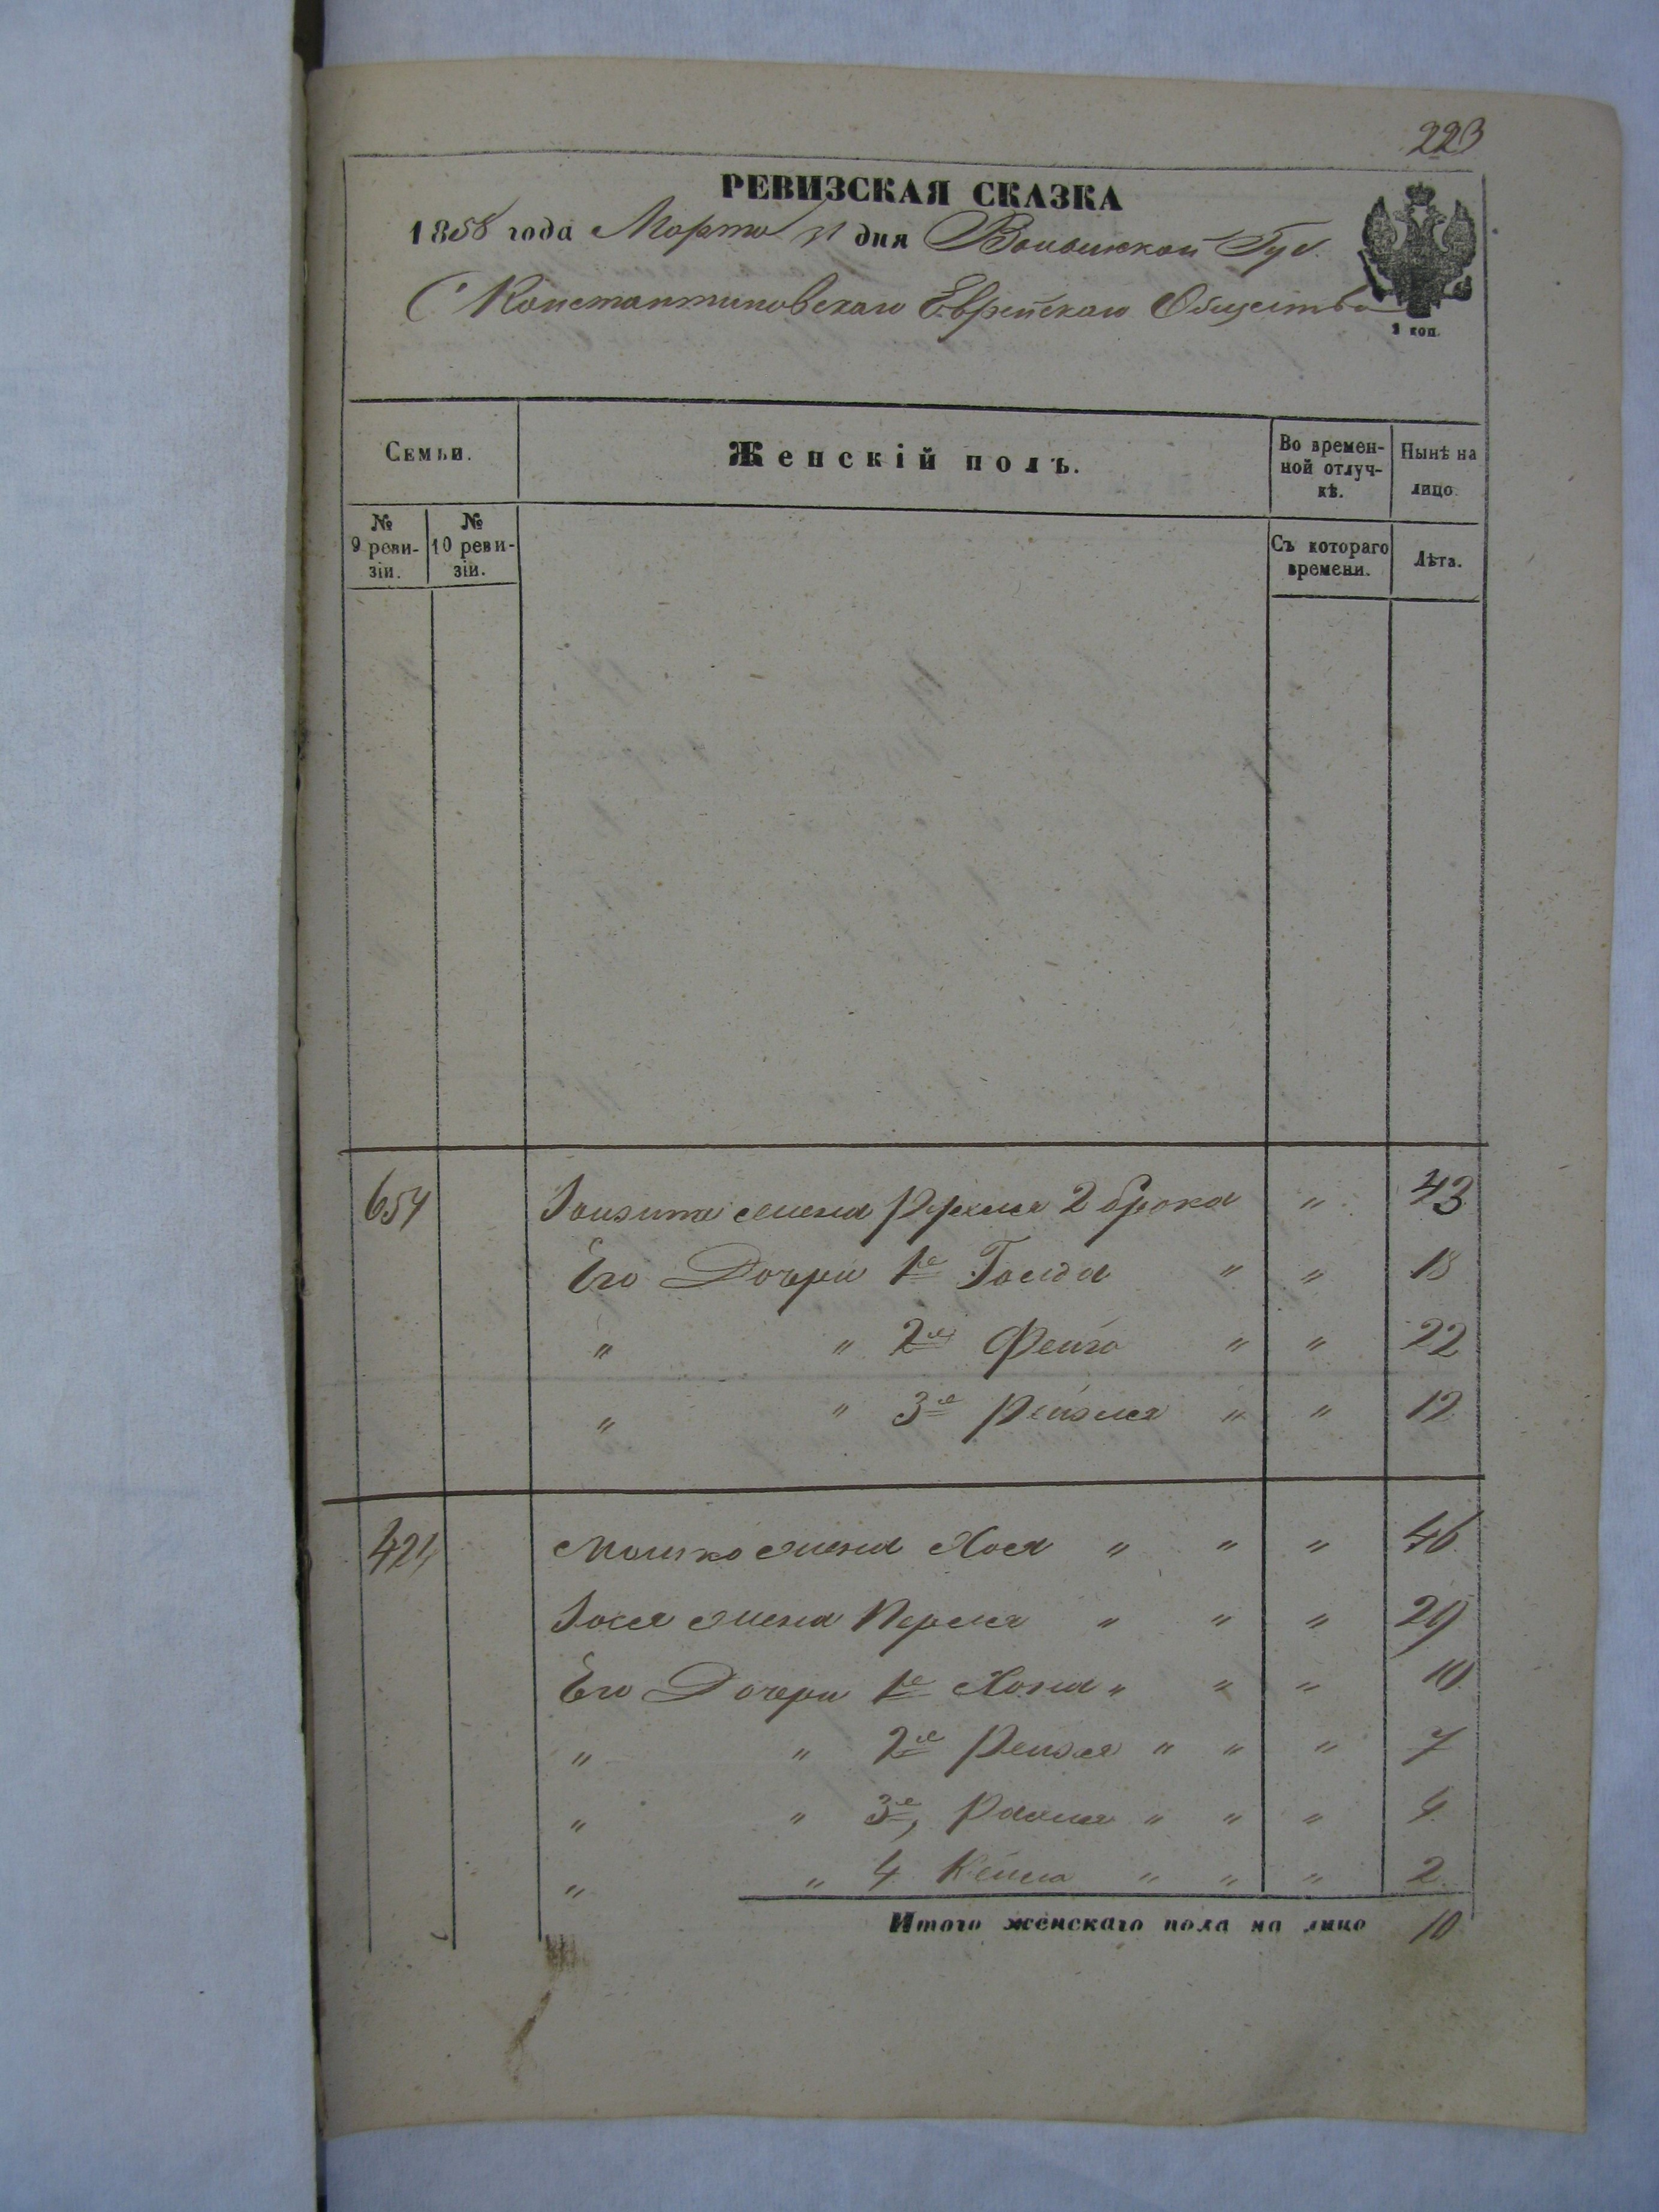 223
РЕВИЗСКАЯ СКАЗКА
1858 года Марта 31 дня Волынской Губ.
С Константиновскаго Еврейскаго Общества
1 коп.
Семьи.
Женскій полъ.
Во времен-
ной отлуч-
кѣ.
Нынѣ на
лицо.
№
9 реви-
зіи.
№
10 реви-
зіи.
Съ котораго
времени.
Лѣта.
654 жена 2 брака " 43
Его Дочери 1е Голда " " 18
" " 2я Фейга " " 22
" " 3я Рейзля " " 12
424 Мошко жена Хая " " " 46
жена Перля " " " 29
Его Дочери 1е Хана " " " 10
" " 2я " " " 7
" " 3я " " " 4
" " 4 " " " 2
Итого женскаго пола на лицо 10